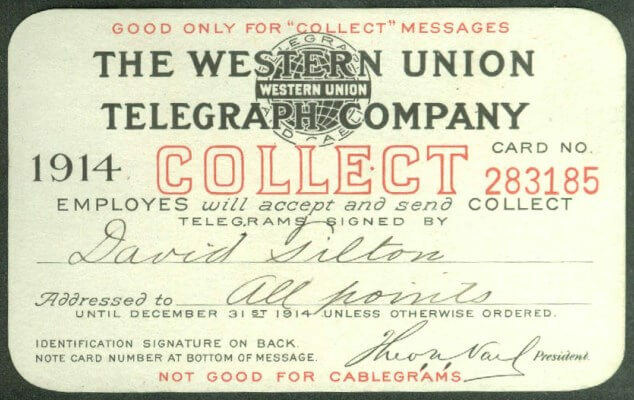 GOOD ONLY FOR "COLLECT" MESSAGES
THE WESTERN UNION
TELEGRAPH COMPANY
TELEGRAPH
WESTERN UNION
AND CABLE
1914 COLLECT CARD NO. 283185
EMPLOYES will accept and send COLLECT
TELEGRAMS SIGNED BY
David Silton
Addressed to All points
UNTIL DECEMBER 31ST 1914 UNLESS OTHERWISE ORDERED.
IDENTIFICATION SIGNATURE ON BACK.
NOTE CARD NUMBER AT BOTTOM OF MESSAGE.
Theo. N. Vail President.
NOT GOOD FOR CABLEGRAMS